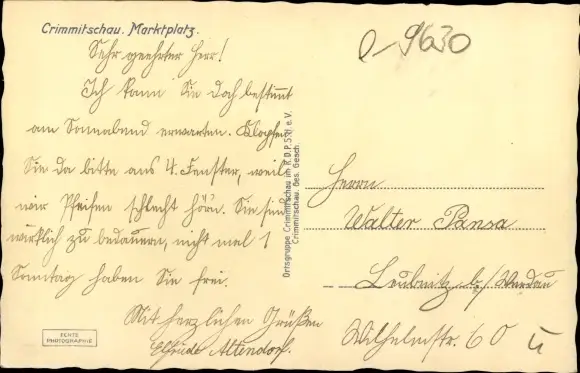 Crimmitschau. Marktplatz.
o-9630
Sehr geehrter Herr!
Ich kann Sie doch bestimmt
am Sonnabend erwarten. Klopfen
Sie da bitte ans 4. Fenster, weil
wir Pfeifen schlecht hörn. Sie sind
wirklich zu bedauern, nicht mel 1
Sonntag haben Sie frei.
Mit herzlichen Grüßen
Elfriede Altendorf.
ECHTE
PHOTOGRAPHIE
Ortsgruppe Crimmitschau im R.D.P.S.H e.V.
Crimmitschau. Ges. Gesch.
Herrn
Walter Pansa
Leubnitz b/ Werdau
Wilhelmstr. 60